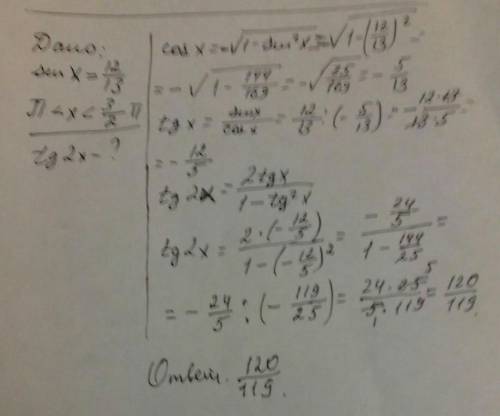 Дано:
sin x = 12/13
П < x < 3/2 П
tg 2x - ?
cos x = -√(1 - sin² x) = -√(1 - (12/13)²) =
= -√(1 - 144/169) = -√(25/169) = - 5/13
tg x = sin x / cos x = 12/13 : (- 5/13) = - 12·13 / 13·5 =
= - 12/5
tg 2x = 2 tg x / (1 - tg² x)
tg 2x = 2·(- 12/5) / (1 - (- 12/5)²) = - 24/5 / (1 - 144/25) =
= - 24/5 : (- 119/25) = 24·25 5 / 5 1·119 = 120/119
Ответ. 120/119.